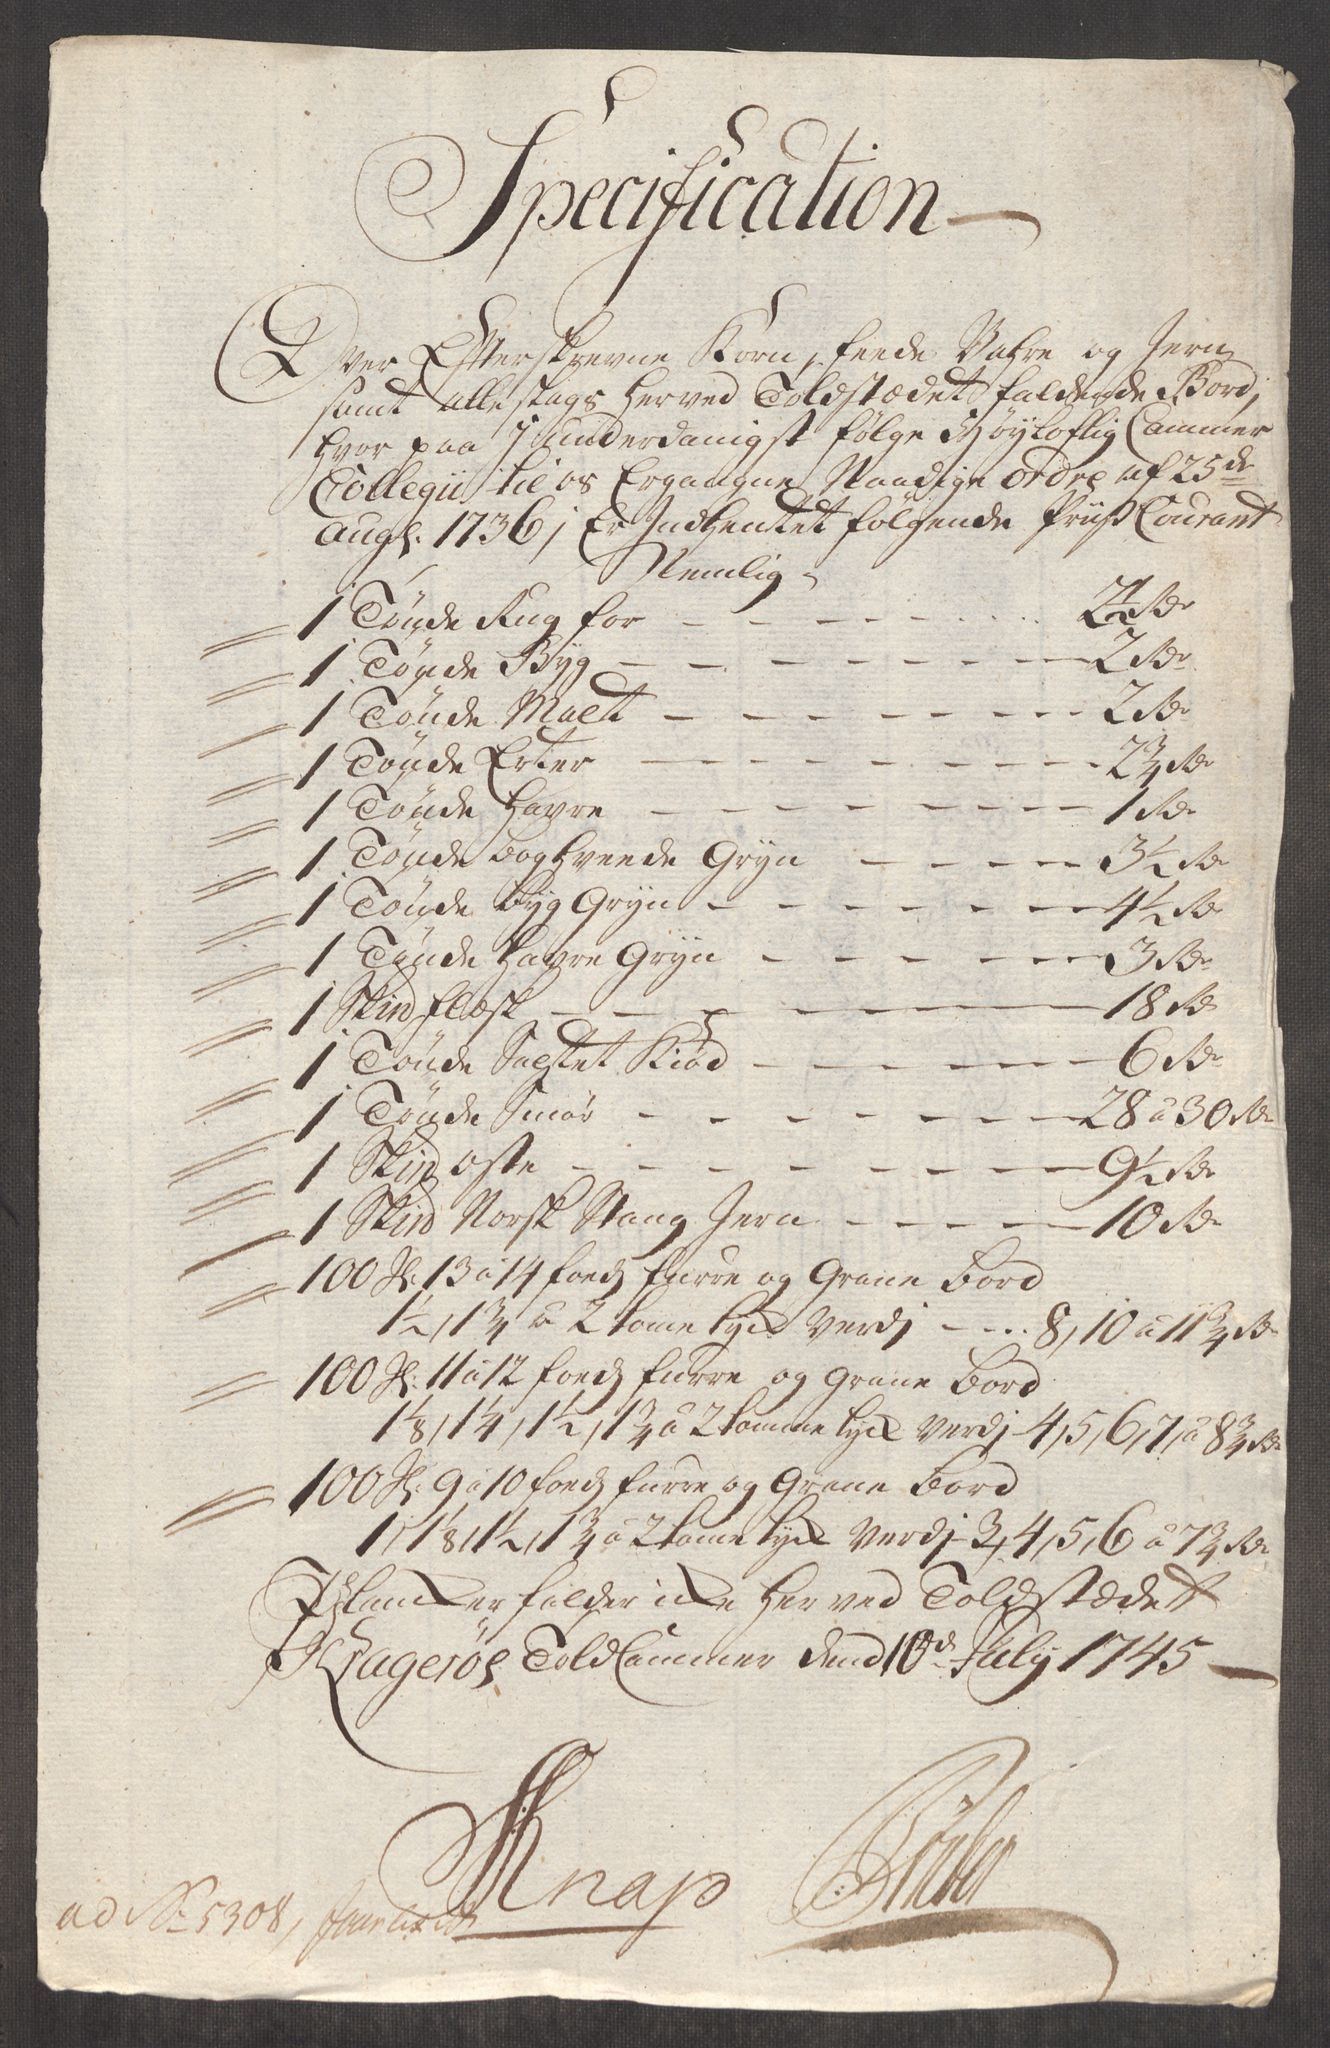 Specification
Over Efterskrevne Korn, feede Vahre og Jern
samt alle slags her ved Toldstædet faldende Bord,
hvor paa I underdanigst følge Høyloflig Cammer
Collegii til os Ergangne Naadige ordre af 25de
Augh: 1736, Er Indhentet følgende Priis Courant
Nemlig
1 Tønde Rug for - - - 2½ Rdr
1 Tønde Byg - - - 2 Rdr
1 Tønde Malt - - - 2 Rdr
1 Tønde Erter - - - 2¾ Rdr
1 Tønde Havre - - - 1 Rdr
1 Tønde boghveede Gryn - - - 3½ Rdr
1 Tønde byg Gryn - - - 4½ Rdr
1 Tønde Havre Gryn - - - 3 Rdr
1 Skind flesk - - - 18 Rdr
1 Tønde Saltet Kiød - - - 6 Rdr
1 Tønde Smør - - - 28 a 30 Rdr
1 Skind oste - - - 9½ Rdr
1 Skind Norsk Stang Jern - - - 10 Rdr
100 St: 13 a 14 foeds furre og Grane Bord
1½, 1¾ a 2 tome tyck Verdj - - - 8, 10 a 11¾ Rdr
100 St: 11 a 12 foeds furre og Grane Bord
1⅛, 1¼, 1½, 1¾ a 2 tomme tyck Verdj 4, 5, 6, 7, a 8¾ Rdr
100 St: 9 a 10 foeds furre og Grane Bord
1, 1⅛, 1½, 1¾ a 2 tome tyck Verdj 3, 4, 5, 6 a 7¾ Rdr
Plancker falder icke her ved Toldstædet
Kragerøes Told Cammer dend 10d July 1745
Knap
ad No 5308,